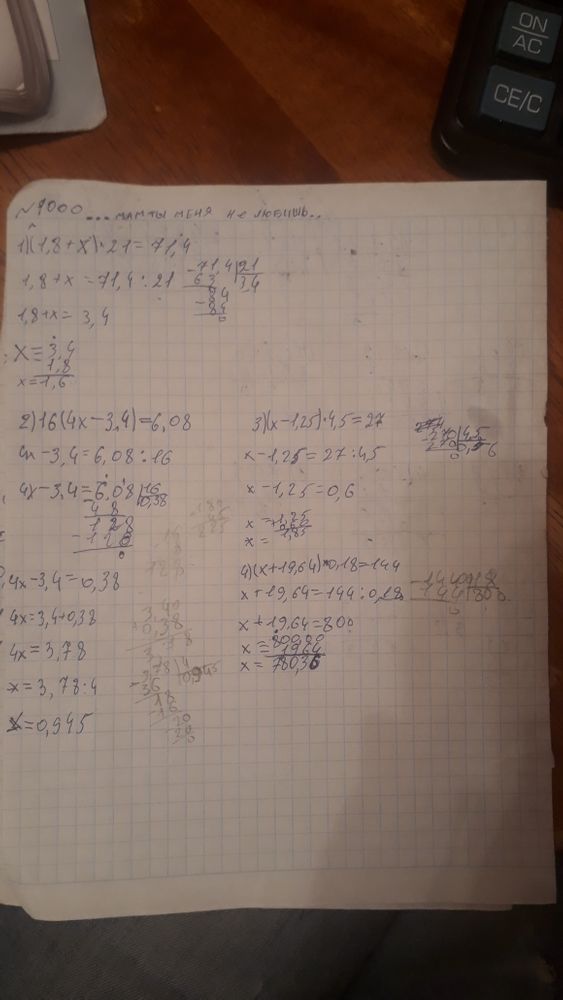 ON
AC
CE/C
№1000 ... мам ты меня не любишь..
1)(1,8+x)·21=71,4
1,8+x=71,4:21
71,4 21
63 3,4
84
-84
0
1,8+x=3,4
x=3,4
1,8
x=1,6
2)16(4x-3,4)=6,08
4x-3,4=6,08:16
4x-3,4=6,08 16
48 0,38
128
0
4x-3,4=0,38
4x=3,4+0,38
4x=3,78
x=3,78:4
x=0,945
3,40
0,38
3,78
3,78 4
36 0,945
18
16
20
20
0
3)(x-1,25)·4,5=27
x-1,25=27:4,5
x-1,25=0,6
x=1,25
x=1,85
270 4,5
270
0
4)(x+19,64)·0,18=144
x+19,64=144:0,18
x+19,64=800
x=800,00
1964
x=780,36
14400 18
144 800
0